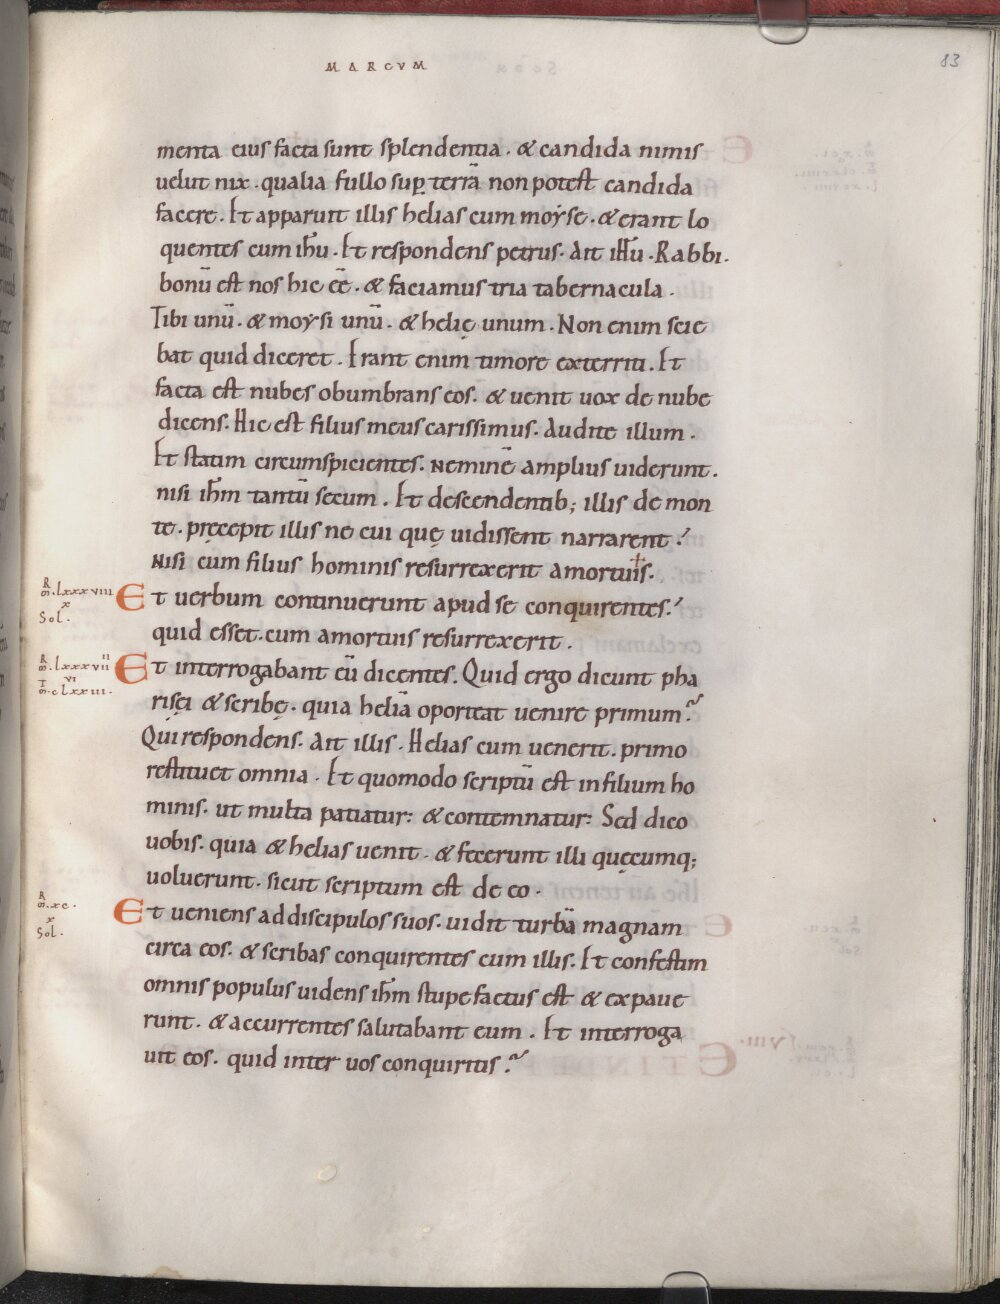 MARCVM
83
menta eius facta sunt splendentia . & candida nimis
uelut nix . qualia fullo sup̱ terrā non potest candida
facere . Et apparuit illis helias cum moẏse . & erant lo
quentes cum ih̅u . Et respondens petrus . Ait ih̅u . Rabbi .
bonū est nos hic ēē . & faciamus tria tabernacula .
Tibi unū . & moẏsi unū . & helię unum . Non enim scie
bat quid diceret . Erant enim timore exterriti . Et
facta est nubes obumbrans eos . & uenit uox de nube
dicens . Hic est filius meus carissimus . Audite illum .
Et statim circumspicientes . neminē amplius uiderunt .
nisi ih̅m tantū secum . Et descendentib; illis de mon
te . pręcepit illis ne cui quę uidissent narrarent ?
Nisi cum filius hominis resurrexerit a mortuis .
R̅ . lxxxviii
x
Sol .
Et uerbum continuerunt apud se conquirentes ?
quid esset . cum a mortuis resurrexerit .
lxxxvii
vi
clxxiii .
Et interrogabant eū dicentes . Quid ergo dicunt pha
risęi & scribę . quia heliā oporteat uenire primum ?
Qui respondens . Ait illis . Helias cum uenerit . primo
restituet omnia . Et quomodo scriptū est in filium ho
minis . ut multa patiatur : & contemnatur : Sed dico
uobis . quia & helias uenit . & fecerunt illi quęcumq;
uoluerunt . sicut scriptum est de eo .
xc .
x
Sol .
Et ueniens ad discipulos suos . uidit turbā magnam
circa eos . & scribas conquirentes cum illis . Et confestim
omnis populus uidens ih̅m stupefactus est & expaue
runt . & accurrentes salutabant eum . Et interroga
uit eos . quid inter uos conquiritis ?